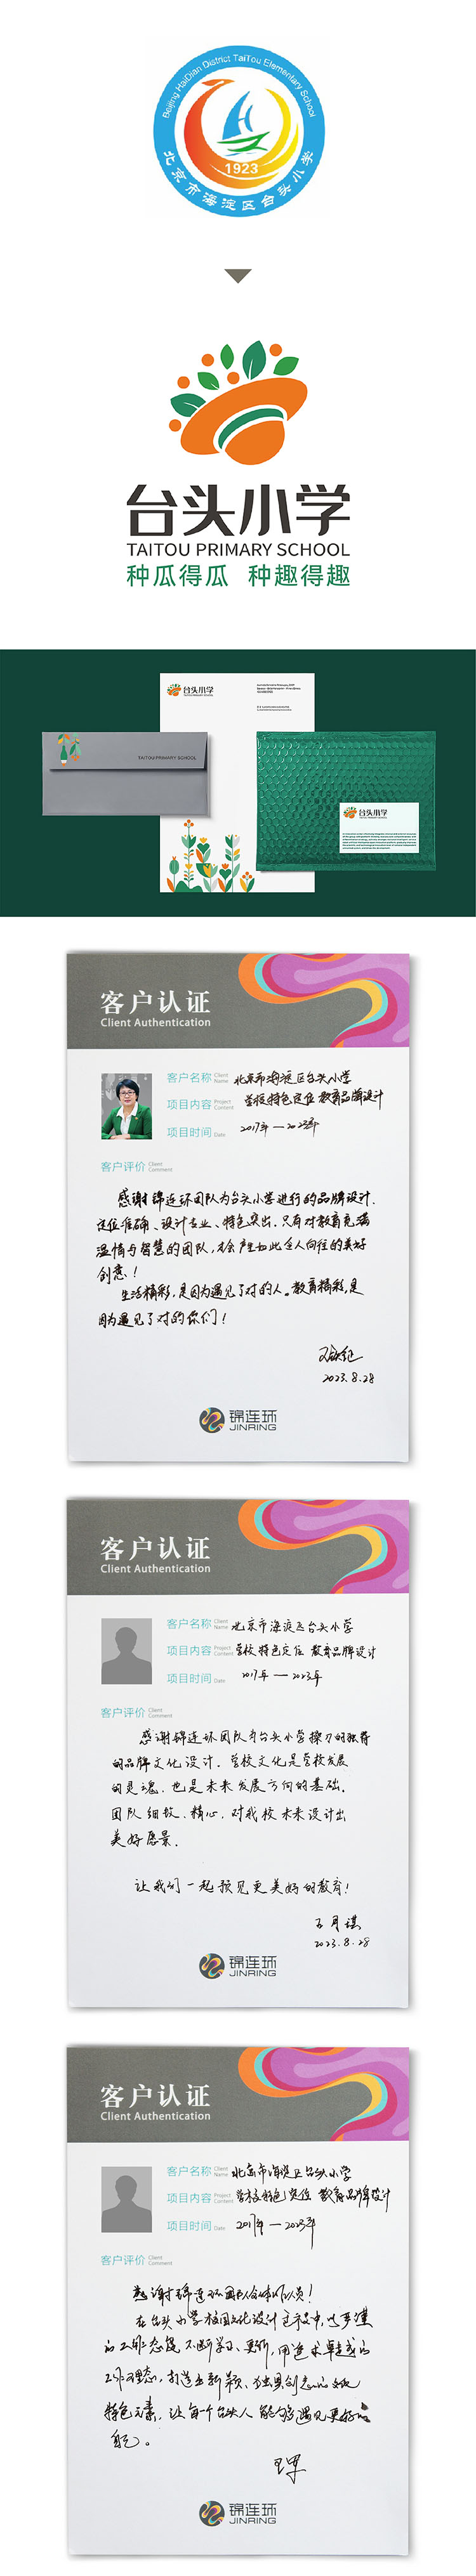 Beijing HaiDian District TaiTou Elementary School
1923
北京市海淀区台头小学
台头小学
TAITOU PRIMARY SCHOOL
种瓜得瓜 种趣得趣
台头小学
TAITOU PRIMARY SCHOOL
台头小学
客户认证
Client Authentication
客户名称 Client Name 北京市海淀区台头小学
项目内容 Project Content 学校特色定位 教育品牌设计
项目时间 Date 2017年—2023年
客户评价 Client Comment
感谢锦连环团队为台头小学进行的品牌设计.
定位准确、设计专业、特色突出.只有对教育充满
温情与智慧的团队,才会产生如此令人向往的美好
创意!
生活精彩,是因为遇见了对的人。教育精彩,是
因为遇见了对的你们!
2023.8.28
锦连环
JINRING
客户认证
Client Authentication
客户名称 Client Name 北京市海淀区台头小学
项目内容 Project Content 学校特色定位 教育品牌设计
项目时间 Date 2017年—2023年
客户评价 Client Comment
感谢锦连环团队为台头小学操刀的独特
的品牌文化设计.学校文化是学校发展
的灵魂.也是未来发展方向的基础.
团队细致、精心,对我校未来设计出
美好愿景.
让我们一起预见更美好的教育!
2023.8.28
锦连环
JINRING
客户认证
Client Authentication
客户名称 Client Name 北京市海淀区台头小学
项目内容 Project Content 学校特色定位 教育品牌设计
项目时间 Date 2017年—2023年
客户评价 Client Comment
感谢锦连环团队全体队员!
在台头小学校园文化设计过程中,以严谨
的工作态度,不断学习、更新,用追求卓越的
工作理念,打造出新颖、独具创意的文化
特色元素,让每一个台头人能够遇见更好的
自己。
锦连环
JINRING